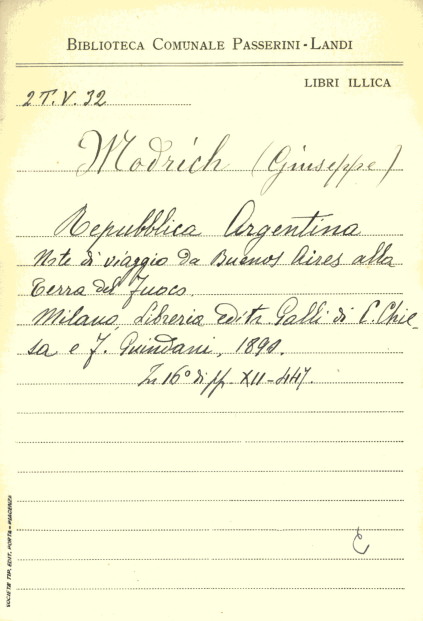 BIBLIOTECA COMUNALE PASSERINI-LANDI
LIBRI ILLICA
2T.V.32
Modrich (Giuseppe)
Repubblica Argentina
Note di viaggio da Buenos Aires alla
Terra del Fuoco.
Milano, Libreria editr. Galli di C. Chie-
sa e F. Guindani, 1890.
In 16° di pp. XII-447.
SOCIETÀ TIP. EDIT. PORTA - PIACENZA